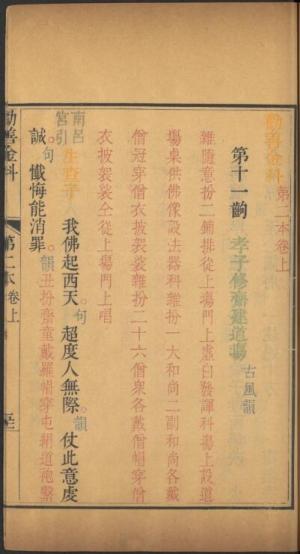 勸善金科 第二本卷上
第十一齣 孝子修齋建道場 古風韻
雜隨意扮二鋪排從上場門上虛白發諢科場上設道
場桌供佛像設法器科雜扮一大和尚二副和尚各戴
僧冠穿僧衣披袈裟雜扮二十六僧衆各戴僧帽穿僧
衣披袈裟仝從上場門上唱
南呂宮引 生查子 我佛起西天句超度人無際韻仗此意虔
誠句懺悔能消罪韻丑扮齋童戴羅帽穿屯絹道袍繫
勸善金科 第二本卷上